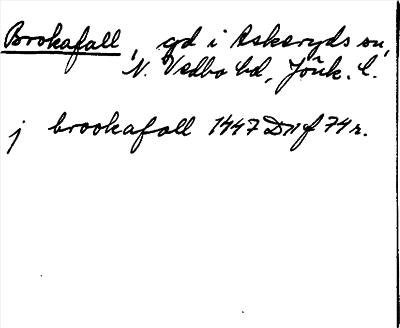 Brokafall, gd i Askeryds sn,
N. Vedbo hd, Jönk. l.
j brookafall 1447 Dnf 74 r.